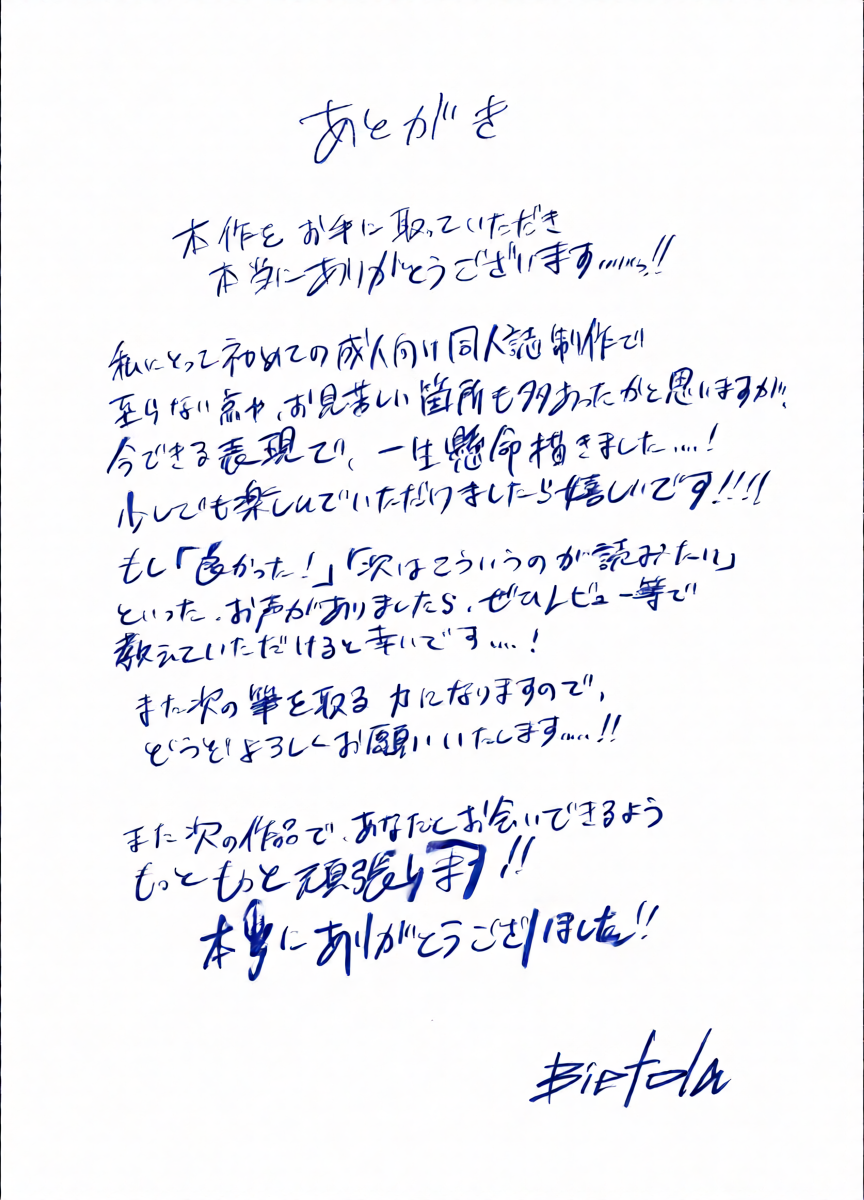 あとがき
本作をお手に取っていただき
本当にありがとうございます……っ!!
私にとって初めての成人向け同人誌制作で
至らない点や、お見苦しい箇所も多々あったかと思いますが、
今できる表現で、一生懸命描きました…!
少しでも楽しんでいただけましたら嬉しいです!!!!
もし「良かった!」「次はこういうのが読みたい」
といった、お声がありましたら、ぜひレビュー等で
教えていただけると幸いです…!
また次の筆を取る力になりますので、
どうぞよろしくお願いいたします……!!
また次の作品で、あなたとお会いできるよう
もっともっと頑張ります!!
本当にありがとうございました!!
Bietola